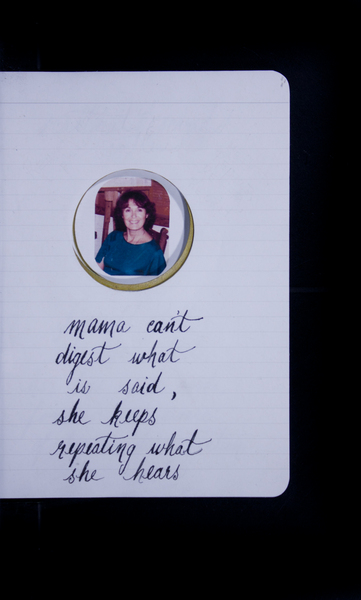 mama can't
digest what
is said,
she keeps
repeating what
she hears